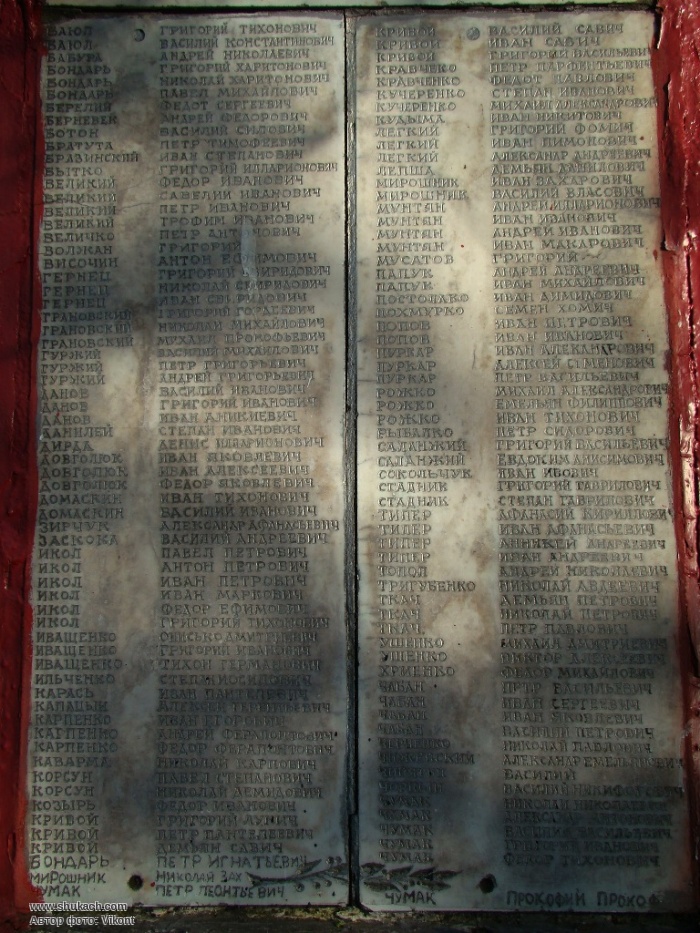 БАЮЛ ГРИГОРИЙ ТИХОНОВИЧ
БАЮЛ ВАСИЛИЙ КОНСТАНТИНОВИЧ
БАБУРА АНДРЕЙ НИКОЛАЕВИЧ
БОНДАРЬ ГРИГОРИЙ ХАРИТОНОВИЧ
БОНДАРЬ НИКОЛАЙ ХАРИТОНОВИЧ
БОНДАРЬ ПАВЕЛ МИХАЙЛОВИЧ
БЕРЕЛИЙ ФЕДОТ СЕРГЕЕВИЧ
БЕРНЕВЕЙ АНДРЕЙ ФЕДОРОВИЧ
БОТОН ВАСИЛИЙ СИЛОВИЧ
БРАТУТА ПЕТР ТИМОФЕЕВИЧ
БРАВИНСКИЙ ИВАН СТЕПАНОВИЧ
БЫТКО ГРИГОРИЙ ИЛЛАРИОНОВИЧ
ВЕЛИКИЙ ФЕДОР ИВАНОВИЧ
ВЕЛИКИЙ САВЕЛИЙ ИВАНОВИЧ
ВЕЛИКИЙ ПЕТР ИВАНОВИЧ
ВЕЛИКИЙ ТРОФИМ ИВАНОВИЧ
ВЕЛИЧКО ПЕТР АНТОНОВИЧ
ВОЛЖАН ГРИГОРИЙ
ВИСОЧИН АНТОН ЕФИМОВИЧ
ГЕРНЕЦ ГРИГОРИЙ СПИРИДОВИЧ
ГЕРНЕЦ НИКОЛАЙ СПИРИДОВИЧ
ГЕРНЕЦ ИВАН СВИРИДОВИЧ
ГРАНОВСКИЙ ГРИГОРИЙ ГОРДЕЕВИЧ
ГРАНОВСКИЙ НИКОЛАЙ МИХАЙЛОВИЧ
ГРАНОВСКИЙ МИХАИЛ ПРОКОФЬЕВИЧ
ГУРЖИЙ ВАСИЛИЙ МИХАЙЛОВИЧ
ГУРЖИЙ ПЕТР ГРИГОРЬЕВИЧ
ГУРЖИЙ АНДРЕЙ ГРИГОРЬЕВИЧ
ДАНОВ ВАСИЛИЙ ИВАНОВИЧ
ДАНОВ ГРИГОРИЙ ИВАНОВИЧ
ДАНОВ ИВАН АНИКИЕВИЧ
ДАНИЛЕЙ СТЕПАН ИВАНОВИЧ
ДИРДА ДЕНИС ИЛЛАРИОНОВИЧ
ДОВГОЛЮК ИВАН ЯКОВЛЕВИЧ
ДОВГОЛЮК ИВАН АЛЕКСЕЕВИЧ
ДОВГОЛЮК ФЕДОР ЯКОВЛЕВИЧ
ДОМАСКИН ИВАН ТИХОНОВИЧ
ДОМАСКИН ВАСИЛИЙ ИВАНОВИЧ
ЗИРЧУК АЛЕКСАНДР АФАНАСЬЕВИЧ
ЗАСКОКА ВАСИЛИЙ АНДРЕЕВИЧ
ИКОЛ ПАВЕЛ ПЕТРОВИЧ
ИКОЛ АНТОН ПЕТРОВИЧ
ИКОЛ ИВАН ПЕТРОВИЧ
ИКОЛ ИВАН МАРКОВИЧ
ИКОЛ ФЕДОР ЕФИМОВИЧ
ИКОЛ ГРИГОРИЙ ТИХОНОВИЧ
ИВАЩЕНКО ОНИСЬКО ДМИТРИЕВИЧ
ИВАЩЕНКО ГРИГОРИЙ ИВАНОВИЧ
ИВАЩЕНКО ТИХОН ГЕРМАНОВИЧ
ИЛЬЧЕНКО СТЕПАН ИОСИПОВИЧ
КАРАСЬ ИВАН ПАНТЕЛЕЕВИЧ
КАПАЦЫН АЛЕКСЕЙ
КАРПЕНКО ИВАН ЕГОРОВИЧ
КАРПЕНКО АНДРЕЙ ФЕРАПОНТОВИЧ
КАРПЕНКО ФЕДОР ФЕРАПОНТОВИЧ
КАВАРМА НИКОЛАЙ КАРПОВИЧ
КОРСУН ПАВЕЛ СТЕПАНОВИЧ
КОРСУН НИКОЛАЙ ДЕМИДОВИЧ
КОЗЫРЬ ФЕДОР ИВАНОВИЧ
КРИВОЙ ГРИГОРИЙ ЛУПИЧ
КРИВОЙ ПЕТР ПАНТЕЛЕЕВИЧ
КРИВОЙ ДЕМЬЯН САВИЧ
БОНДАРЬ ПЕТР ИГНАТЬЕВИЧ
МИРОШНИК НИКОЛАЙ ЗАХ
ЧУМАК ПЕТР ЛЕОНТЬЕВИЧ
КРИВОЙ ВАСИЛИЙ САВИЧ
КРИВОЙ ИВАН САВИЧ
КРИВОЙ ГРИГОРИЙ ВАСИЛЬЕВИЧ
КРАВЧЕНКО ПЕТР ПАРФЕНТЬЕВИЧ
КРАВЧЕНКО ФЕДОТ ПАВЛОВИЧ
КУЧЕРЕНКО СТЕПАН ИВАНОВИЧ
КУЧЕРЕНКО МИХАИЛ АЛЕКСАНДРОВИЧ
КУДЫМА ИВАН НИКИТОВИЧ
ЛЕГКИЙ ГРИГОРИЙ ФОМИЧ
ЛЕГКИЙ ИВАН ПИМОНОВИЧ
ЛЕГКИЙ АЛЕКСАНДР АНДРЕЕВИЧ
ЛЕПША ДЕМЬЯН ДАНИЛОВИЧ
МИРОШНИК ИВАН ЗАХАРОВИЧ
МИРОШНИК ВАСИЛИЙ ВЛАСОВИЧ
МУНТЯН АНДРЕЙ ИЛЛАРИОНОВИЧ
МУНТЯН ИВАН ИВАНОВИЧ
МУНТЯН АНДРЕЙ ИВАНОВИЧ
МУНТЯН ИВАН МАКАРОВИЧ
МУСАТОВ ГРИГОРИЙ
ПАПУК АНДРЕЙ АНДРЕЕВИЧ
ПАПУК ИВАН МИХАЙЛОВИЧ
ПОСТОЛАКО ИВАН ДИМИДОВИЧ
ПОХМУРКО СЕМЕН ХОМИЧ
ПОПОВ ИВАН ПЕТРОВИЧ
ПОПОВ ИВАН ИВАНОВИЧ
ПУРКАР ИВАН АЛЕКСАНДРОВИЧ
ПУРКАР АЛЕКСЕЙ СЕМЕНОВИЧ
ПУРКАР ПЕТР ВАСИЛЬЕВИЧ
РОЖКО МИХАИЛ АЛЕКСАНДРОВИЧ
РОЖКО ЕМЕЛЬЯН ФИЛИППОВИЧ
РОЖКО ИВАН ТИХОНОВИЧ
РЫБАЛКО ПЕТР СИДОРОВИЧ
САЛАНЖИЙ ГРИГОРИЙ ВАСИЛЬЕВИЧ
САЛАНЖИЙ ЕВДОКИМ АНИСИМОВИЧ
СОКОЛЬЧУК ИВАН ИВОВИЧ
СТАДНИК ГРИГОРИЙ ГАВРИЛОВИЧ
СТАДНИК СТЕПАН ГАВРИЛОВИЧ
ТИПЕР АФАНАСИЙ КИРИЛЛОВИЧ
ТИПЕР ИВАН АФАНАСЬЕВИЧ
ТИПЕР АНИКЕЙ АНДРЕЕВИЧ
ТИПЕР ИВАН АНДРЕЕВИЧ
ТОПОЛ АНДРЕЙ НИКОЛАЕВИЧ
ТРИГУБЕНКО НИКОЛАЙ АВДЕЕВИЧ
ТКАЧ ДЕМЬЯН ПЕТРОВИЧ
ТКАЧ НИКОЛАЙ ПЕТРОВИЧ
ТКАЧ ПЕТР ПАВЛОВИЧ
УШЕНКО МИХАИЛ ДМИТРИЕВИЧ
УШЕНКО ВИКТОР АЛЕКСЕЕВИЧ
ХРИЕНКО ФЕДОР МИХАЙЛОВИЧ
ЧАБАН ПЕТР ВАСИЛЬЕВИЧ
ЧАБАН ИВАН СЕРГЕЕВИЧ
ЧАБАН ИВАН ЯКОВЛЕВИЧ
ЧАБАН ВАСИЛИЙ ПЕТРОВИЧ
НИКОЛАЙ ПАВЛОВИЧ
АЛЕКСАНДР ЕМЕЛЬЯНОВИЧ
ВАСИЛИЙ
ВАСИЛИЙ НИКИФОРОВИЧ
ЧУМАК НИКОЛАЙ НИКОЛАЕВИЧ
ЧУМАК АЛЕКСАНДР АНТОНОВИЧ
ЧУМАК ВАСИЛИЙ ВАСИЛЬЕВИЧ
ЧУМАК ГРИГОРИЙ ИВАНОВИЧ
ЧУМАК ФЕДОР ТИХОНОВИЧ
ЧУМАК ПРОКОФИЙ ПРОКОФ
www.shukach.com
Автор фото: Vikont